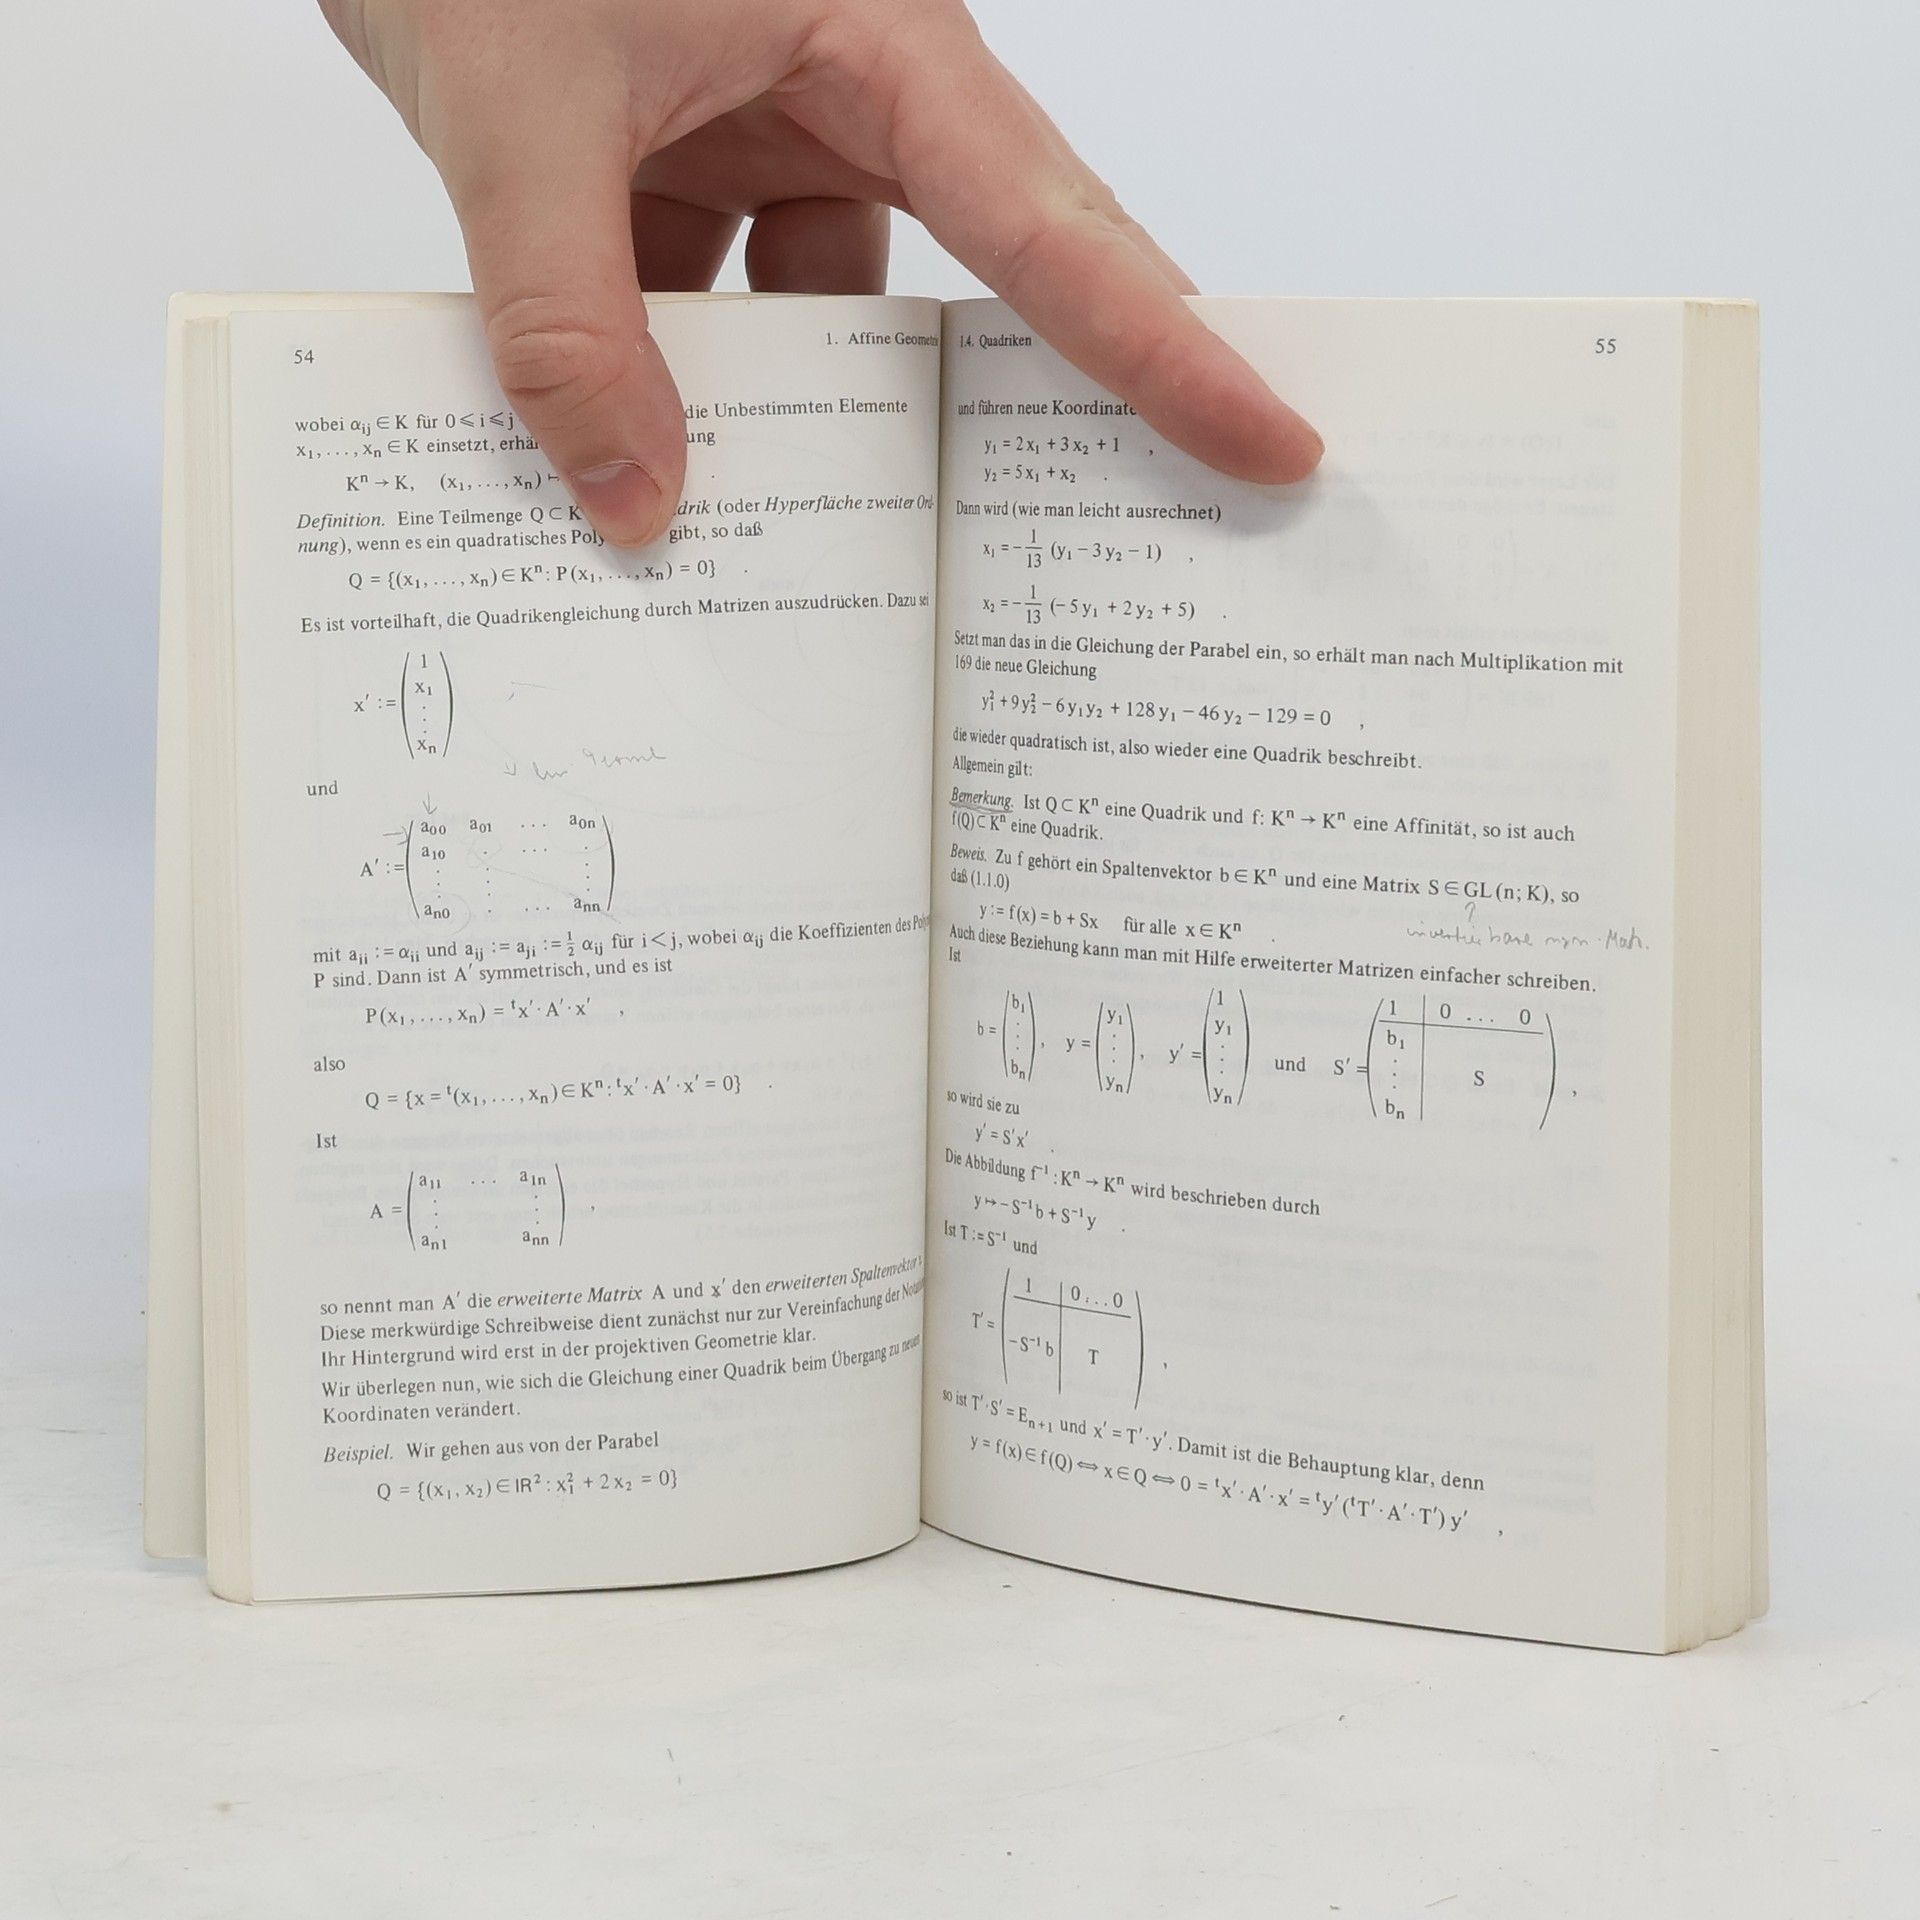 54
1. Affine Geometrie
wobei αᵢⱼ ∈ K für 0 ⩽ i ⩽ j die Unbestimmten Elemente
x₁, . . . , xₙ ∈ K einsetzt,
Kⁿ → K, (x₁, . . . , xₙ) ↦
Definition. Eine Teilmenge Q ⊂ K (oder Hyperfläche zweiter Ord-
nung), wenn es ein quadratisches gibt, so daß
Q = {(x₁, . . . , xₙ) ∈ Kⁿ : P(x₁, . . . , xₙ) = 0} .
Es ist vorteilhaft, die Quadrikengleichung durch Matrizen auszudrücken. Dazu sei
1
x₁
.
x' := .
xₙ
und
a₀₀ a₀₁ . . . a₀ₙ
a₁₀ . . . . .
A' := . . .
. . .
aₙ₀ . . . . aₙₙ
mit aᵢᵢ := αᵢᵢ und aᵢⱼ := aⱼᵢ := ½ αᵢⱼ für i < j, wobei αᵢⱼ die Koeffizienten des
P sind. Dann ist A' symmetrisch, und es ist
P(x₁, . . . , xₙ) = ᵗx' · A' · x' ,
also
Q = {x = ᵗ(x₁, . . . , xₙ) ∈ Kⁿ : ᵗx' · A' · x' = 0} .
Ist
a₁₁ . . . a₁ₙ
A = . . ,
aₙ₁ aₙₙ
so nennt man A' die erweiterte Matrix A und x' den erweiterten Spaltenvektor
Diese merkwürdige Schreibweise dient zunächst nur zur Vereinfachung der
Ihr Hintergrund wird erst in der projektiven Geometrie klar.
Wir überlegen nun, wie sich die Gleichung einer Quadrik beim Übergang zu neuen
Koordinaten verändert.
Beispiel. Wir gehen aus von der Parabel
Q = {(x₁, x₂) ∈ ℝ² : x₁² + 2x₂ = 0}
1.4. Quadriken
55
und führen neue
y₁ = 2x₁ + 3x₂ + 1 ,
y₂ = 5x₁ + x₂ .
Dann wird (wie man leicht ausrechnet)
x₁ = −1/13 (y₁ − 3y₂ − 1) ,
x₂ = −1/13 (−5y₁ + 2y₂ + 5) .
Setzt man das in die Gleichung der Parabel ein, so erhält man nach Multiplikation mit
169 die neue Gleichung
y₁² + 9y₂² − 6y₁y₂ + 128y₁ − 46y₂ − 129 = 0 ,
die wieder quadratisch ist, also wieder eine Quadrik beschreibt.
Allgemein gilt:
Bemerkung. Ist Q ⊂ Kⁿ eine Quadrik und f: Kⁿ → Kⁿ eine Affinität, so ist auch
f(Q) ⊂ Kⁿ eine Quadrik.
Beweis. Zu f gehört ein Spaltenvektor b ∈ Kⁿ und eine Matrix S ∈ GL (n; K), so
daß (1.1.0)
y := f(x) = b + Sx für alle x ∈ Kⁿ .
Auch diese Beziehung kann man mit Hilfe erweiterter Matrizen einfacher schreiben.
Ist
b₁ y₁ 1 1 0 . . . 0
b = . , y = . , y' = y₁ und S' = b₁ S ,
bₙ yₙ yₙ bₙ
so wird sie zu
y' = S'x' .
Die Abbildung f⁻¹ : Kⁿ → Kⁿ wird beschrieben durch
y ↦ −S⁻¹b + S⁻¹y .
Ist T := S⁻¹ und
1 0 . . . 0
T' = −S⁻¹b T ,
so ist T' · S' = Eₙ₊₁ und x' = T' · y'. Damit ist die Behauptung klar, denn
y = f(x) ∈ f(Q) ⟺ x ∈ Q ⟺ 0 = ᵗx' · A' · x' = ᵗy' (ᵗT' · A' · T') y' ,